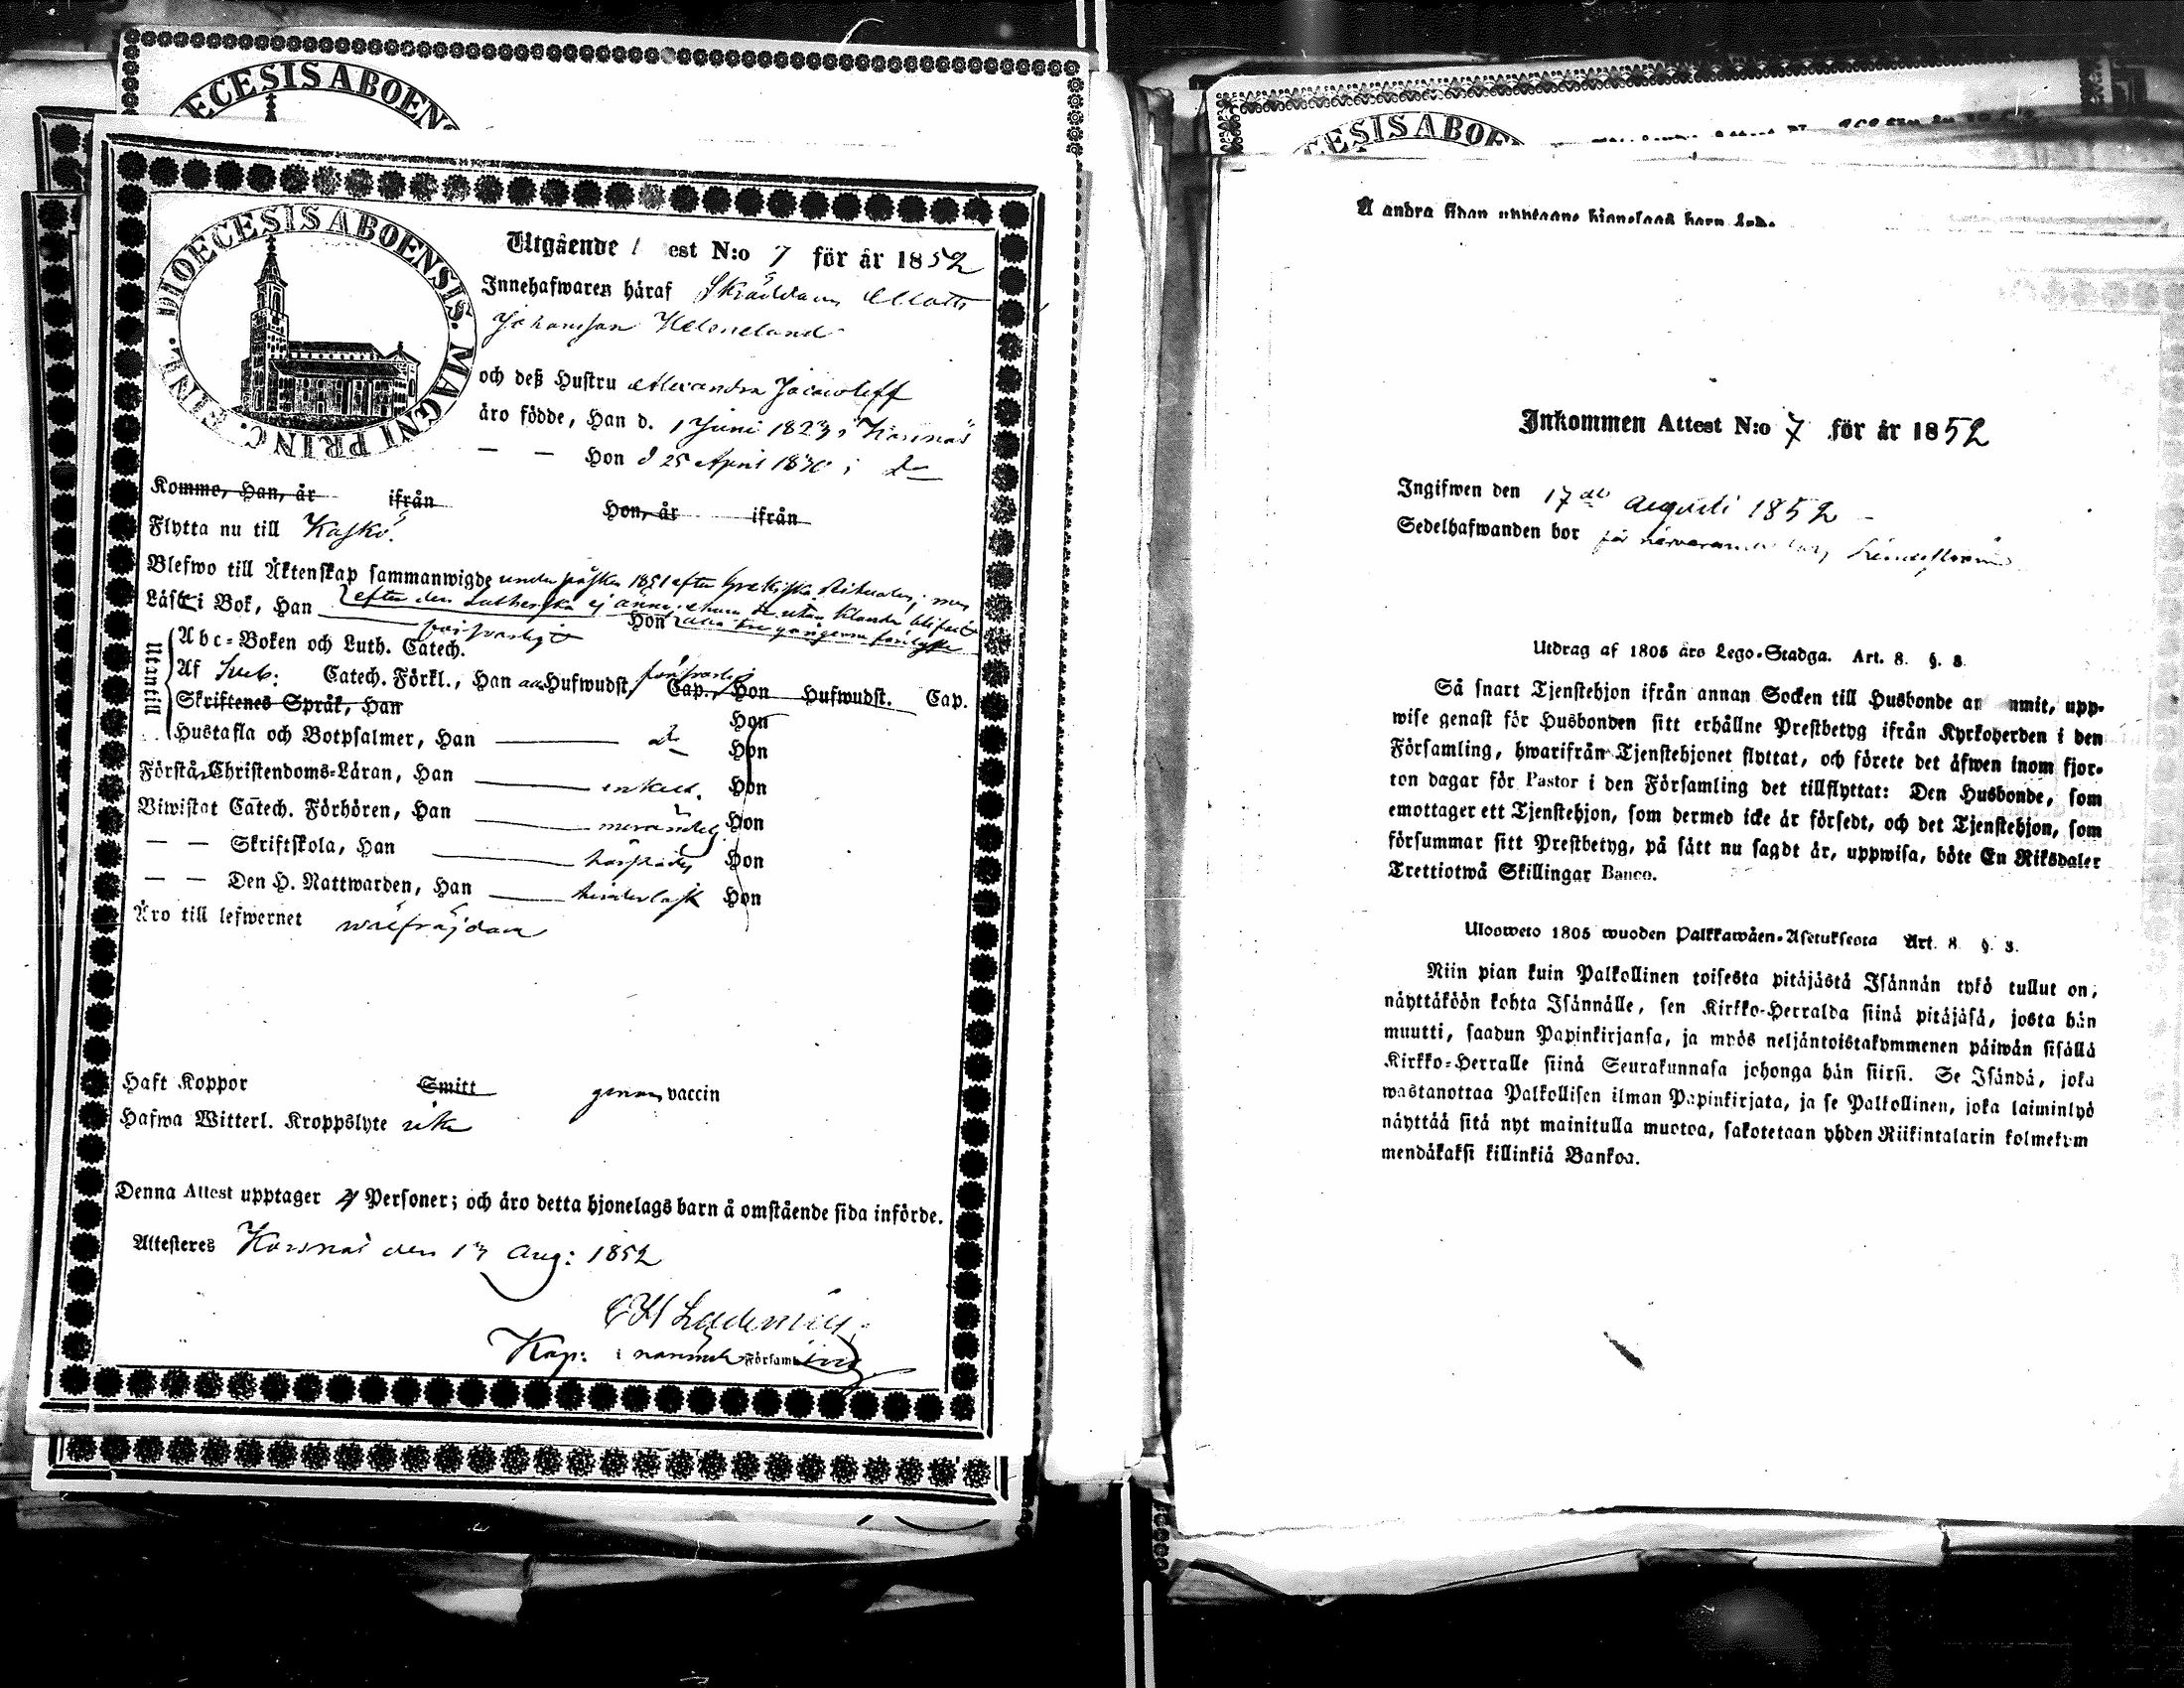 ECESIS ABOEN
DIOECESIS ABOENSIS. MAGNI PRINC. FINL.
Utgående est N:o 7 för år 1852
Innehafwaren häraf Skräddaren Matts
Johansson Helsneland
och deß Hustru Alexandra Jacowleff
äro födde, Han d. 1 Juni 1823 i Korsnäs
— — Hon d 25 April 1830 i do
Komme, Han, år ifrån Hon, år ifrån
Flytta nu till Kaskö.
Blefwo till Äktenskap sammanwigde under påsken 1851 efter Grekiska Ritualen; men
efter den Lutherska ej ännu, ehuru de utan klander blifvit
Läst i Bok, Han försvarligt Hon alla tre gångerna
Utantill
Abc-Boken och Luth. Catech.
Af Sveb: Catech. Förkl., Han Hufwudst. försvarligt Cap., Hon Hufwudst. Cap.
Skriftenes Språk, Han Hon
Hustafla och Botpsalmer, Han do Hon
Förstå Christendoms-Läran, Han enkelt. Hon
Biwistat Catech. Förhören, Han Hon
— — Skriftskola, Han Hon
— — Den H. Nattwarden, Han Hon
Äro till lefwernet wälfräjdade
Haft Koppor Smitt genom vaccin
Hafwa Witterl. Kroppslyte icke
Denna Attest upptager 2 Personer; och äro detta hjonelags barn å omstående sida införde.
Attesteres Korsnäs den 13 Aug: 1852
Kap: i nämnde Församling
ESIS ABOE
Å andra sidan upptagne hjonelags barn
Inkommen Attest N:o 7 för år 1852
Ingifwen den 17de Augusti 1852
Sedelhafwanden bor
Utdrag af 1805 års Lego-Stadga. Art. 8. §. 3.
Så snart Tjenstehjon ifrån annan Socken till Husbonde an mmit, upp-
wise genast för Husbonden sitt erhållne Prestbetyg ifrån Kyrkoherden i den
Församling, hwarifrån Tjenstehjonet flyttat, och förete det äfwen inom fjor-
ton dagar för Pastor i den Församling det tillflyttat: Den Husbonde, som
emottager ett Tjenstehjon, som dermed icke är försedt, och det Tjenstehjon, som
försummar sitt Prestbetyg, på sätt nu sagdt är, uppwisa, böte En Riksdaler
Trettiotwå Skillingar Banco.
Ulosweto 1805 wuoden Palkkawäen-Asetuksesta Art. 8. §. 3.
Niin pian kuin Palkollinen toisesta pitäjästä Isännän tykö tullut on,
näyttäköön kohta Isännälle, sen Kirkko-Herralda siinä pitäjäsä, josta hän
muutti, saadun Papinkirjansa, ja myös neljäntoistakymmenen päiwän sisällä
Kirkko-Herralle siinä Seurakunnasa johonga hän siirsi. Se Isändä, joka
wastanottaa Palkollisen ilman Papinkirjata, ja se Palkollinen, joka laiminlyö
näyttää sitä nyt mainitulla muotoa, sakotetaan yhden Riikintalarin kolmekym
mendäkaksi killinkiä Bankoa.